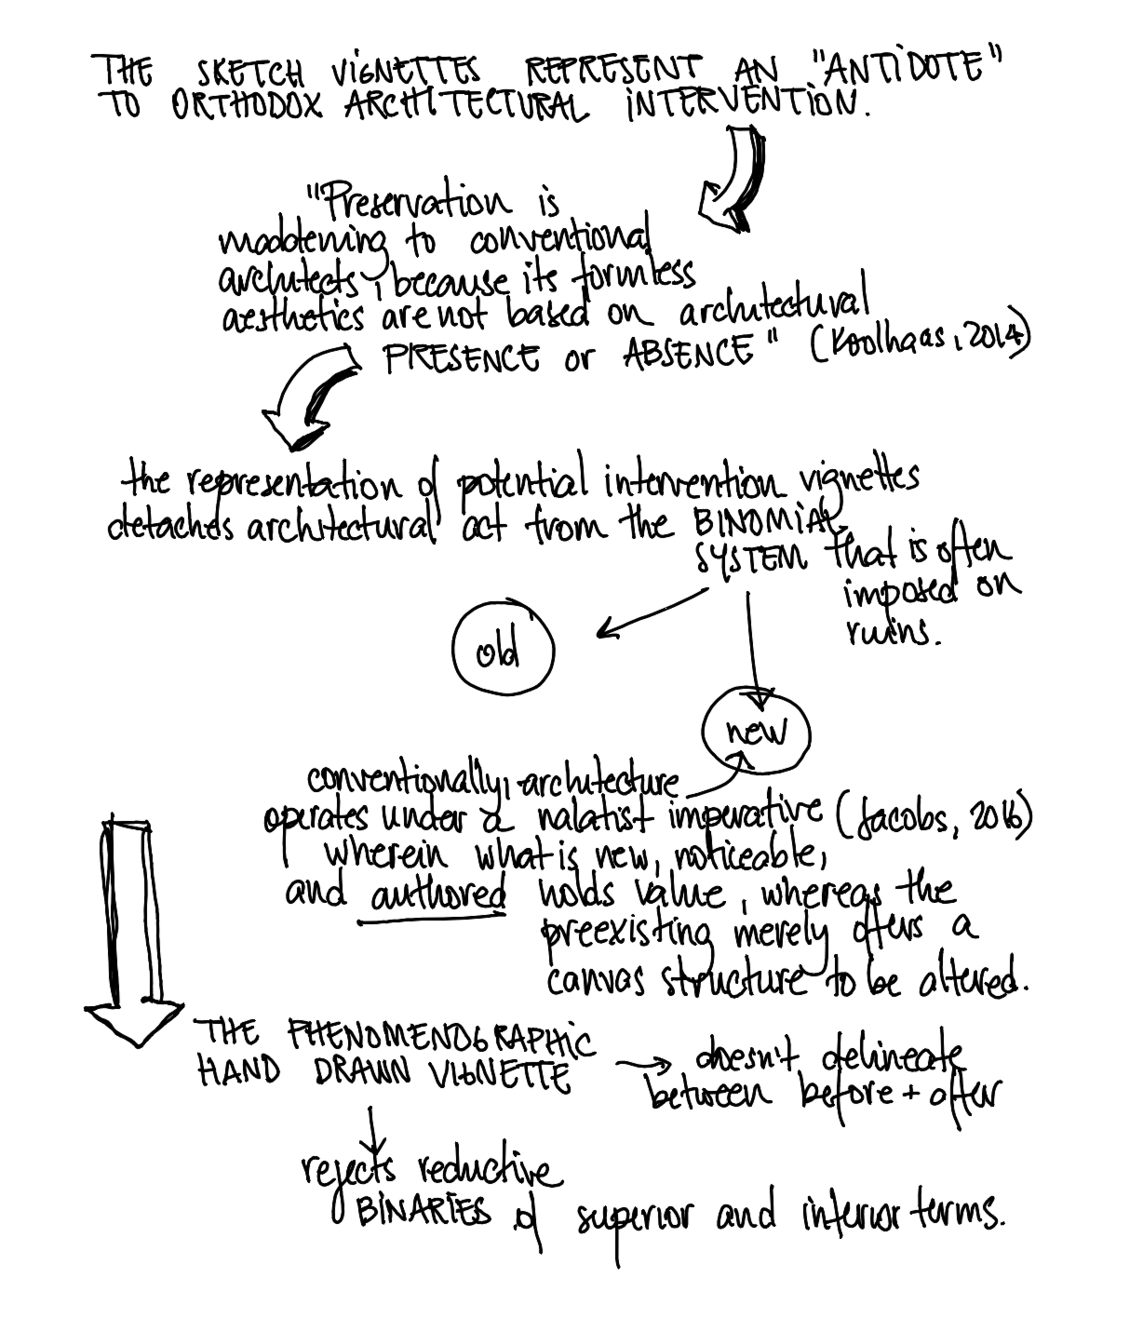 THE SKETCH VIGNETTES REPRESENT AN "ANTIDOTE"
TO ORTHODOX ARCHITECTURAL INTERVENTION.
"Preservation is
maddening to conventional
architects, because its formless
aesthetics are not based on architectural
PRESENCE or ABSENCE" (Koolhaas, 2014)
the representation of potential intervention vignettes
detaches architectural act from the BINOMIAL
SYSTEM that is often
imposed on
ruins.
old
new
conventionally, architecture
operates under a natalist imperative (Jacobs, 2016)
wherein what is new, noticeable,
and authored holds value, whereas the
preexisting merely offers a
canvas structure to be altered.
THE PHENOMENOGRAPHIC
HAND DRAWN VIGNETTE
doesn't delineate
between before + after
rejects reductive
BINARIES of superior and inferior terms.